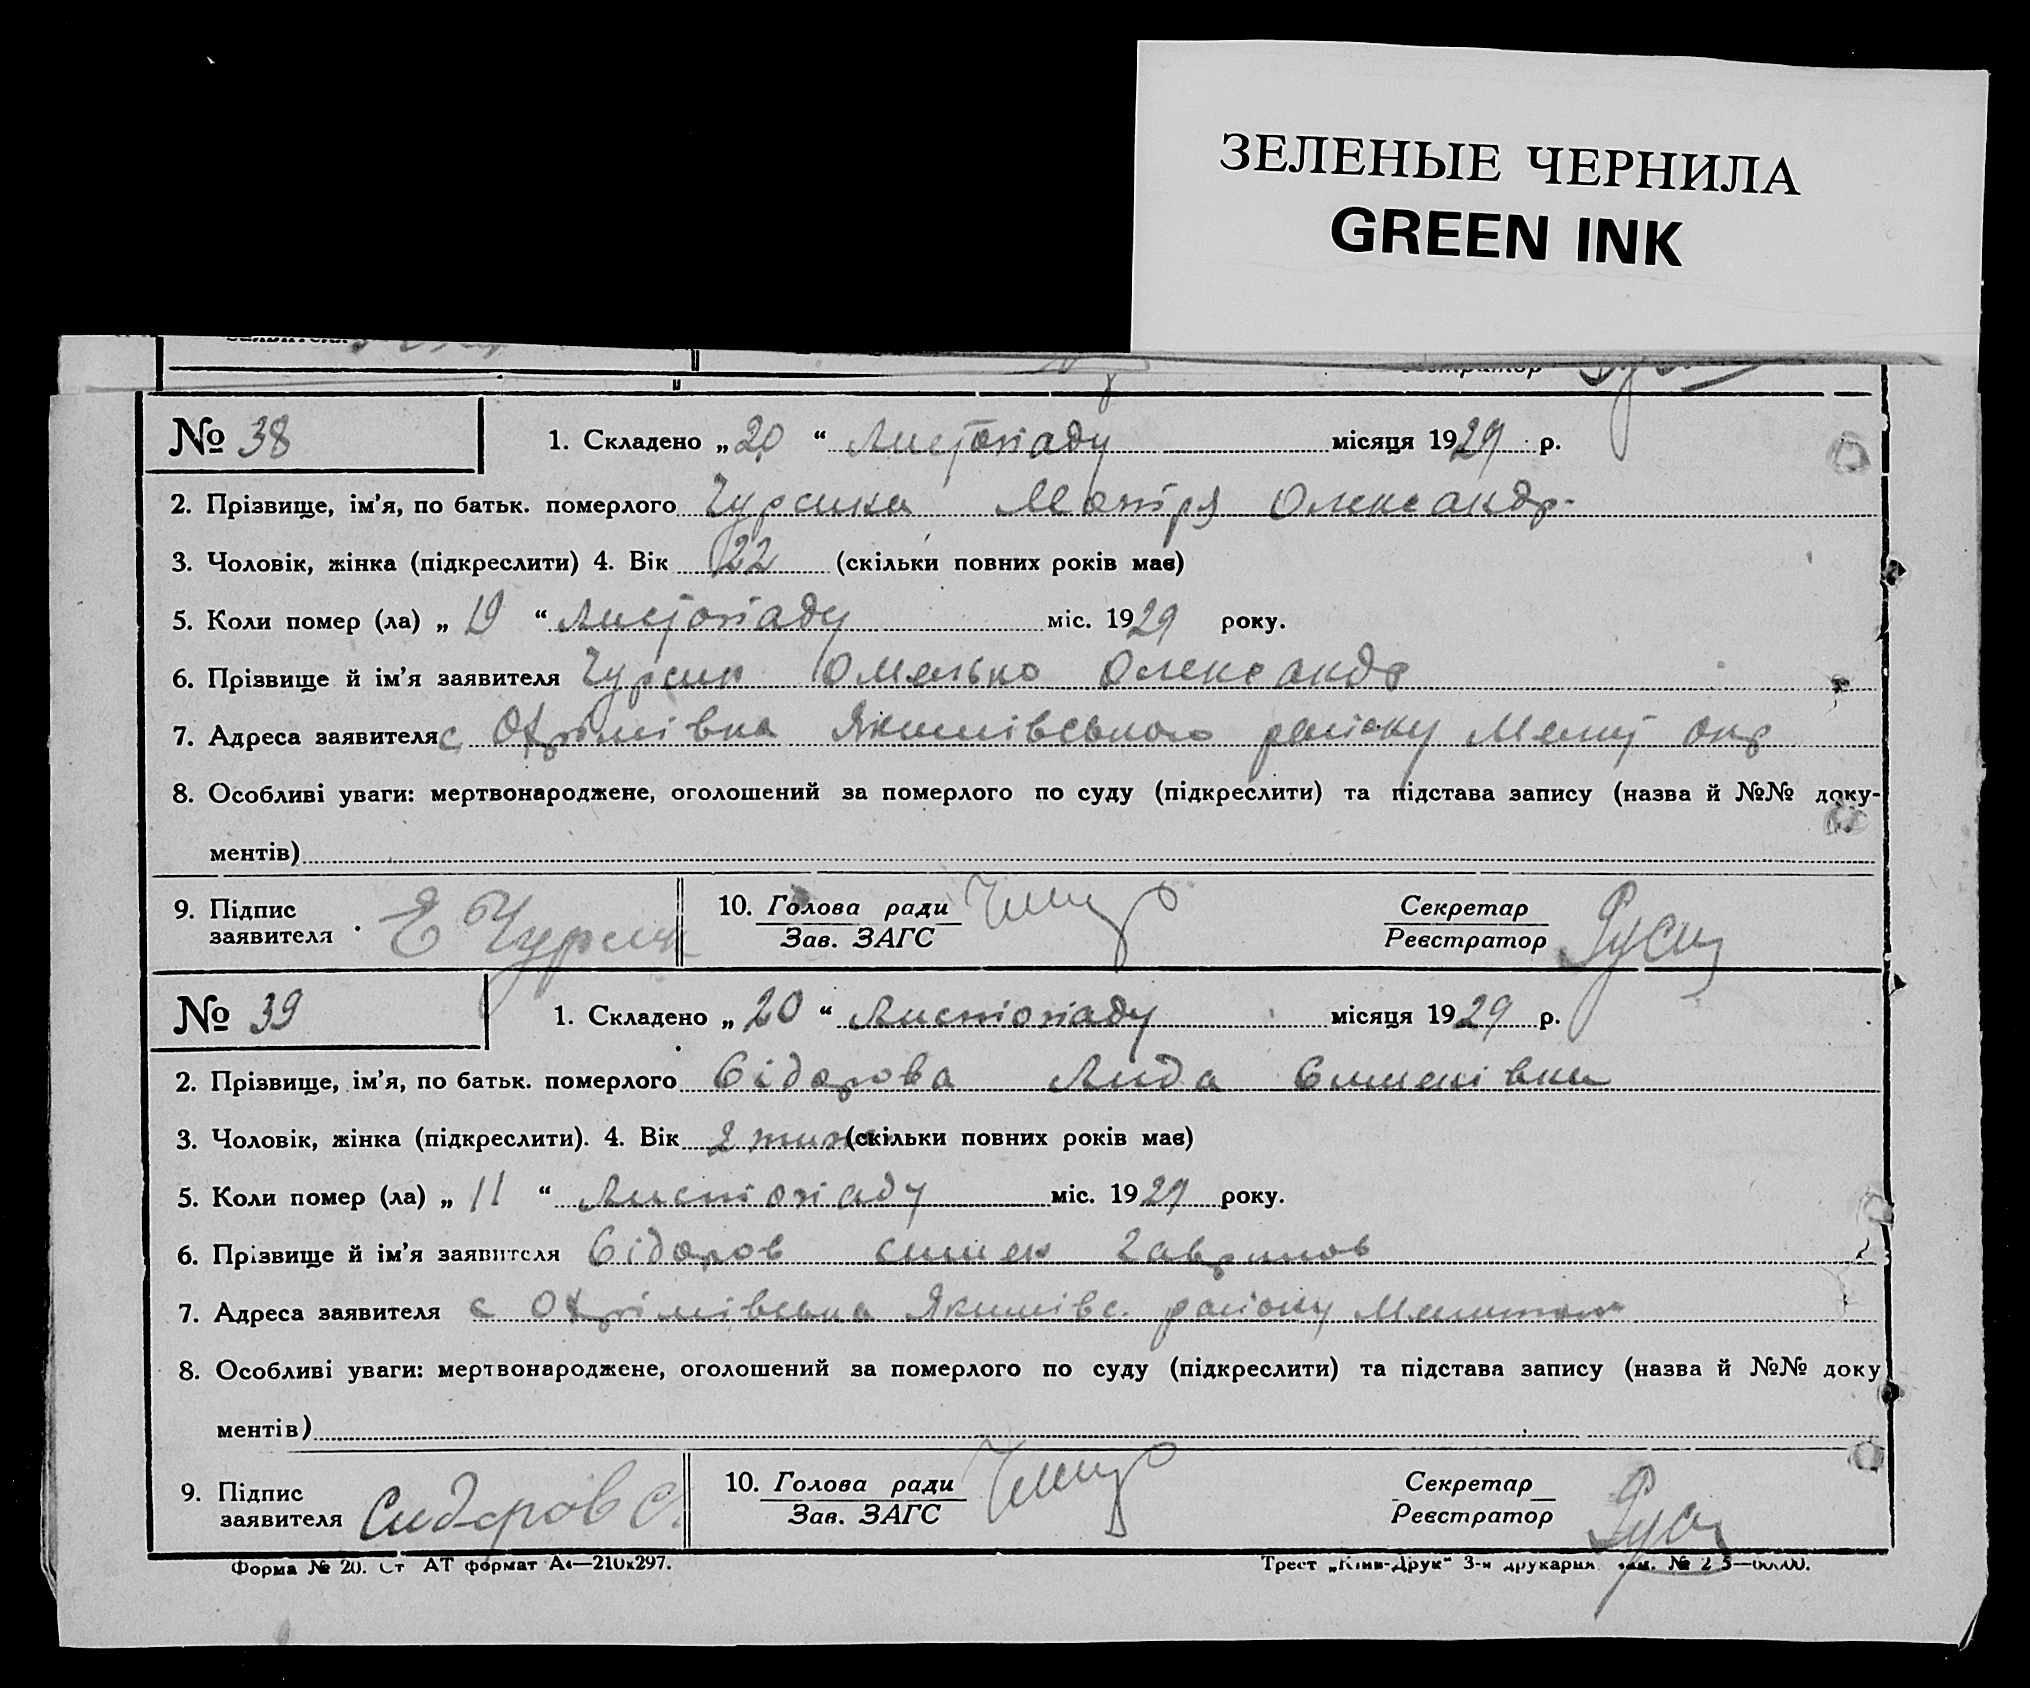 ЗЕЛЕНЫЕ ЧЕРНИЛА
GREEN INK
№ 38
1. Складено „20“ Листопаду місяця 1929 р.
2. Прізвище, ім'я, по батьк. померлого Чурсина Мотря Олександр.
3. Чоловік, жінка (підкреслити) 4. Вік 22 (скільки повних років має)
5. Коли помер (ла) „19“ Листопаду міс. 1929 року.
6. Прізвище й ім'я заявителя Чурсин Омелько Олександр
7. Адреса заявителя с. Охрімівка Якимівського району Меліт окр
8. Особливі уваги: мертвонароджене, оголошений за померлого по суду (підкреслити) та підстава запису (назва й №№ доку-
ментів)
9. Підпис заявителя Е Чурсин
10. Голова ради
Зав. ЗАГС
Секретар
Реєстратор
№ 39
1. Складено „20“ Листопаду місяця 1929 р.
2. Прізвище, ім'я, по батьк. померлого Сідорова Лида
3. Чоловік, жінка (підкреслити). 4. Вік 2 (скільки повних років має)
5. Коли помер (ла) „11“ Листопаду міс. 1929 року.
6. Прізвище й ім'я заявителя Сідоров
7. Адреса заявителя с Охрімівська Якимівс. району
8. Особливі уваги: мертвонароджене, оголошений за померлого по суду (підкреслити) та підстава запису (назва й №№ доку
ментів)
9. Підпис заявителя Сидоров С.
10. Голова ради
Зав. ЗАГС
Секретар
Реєстратор
Форма № 20. Ст АТ формат А4—210х297.
Трест „Київ-Друк“ 3-я друкарня